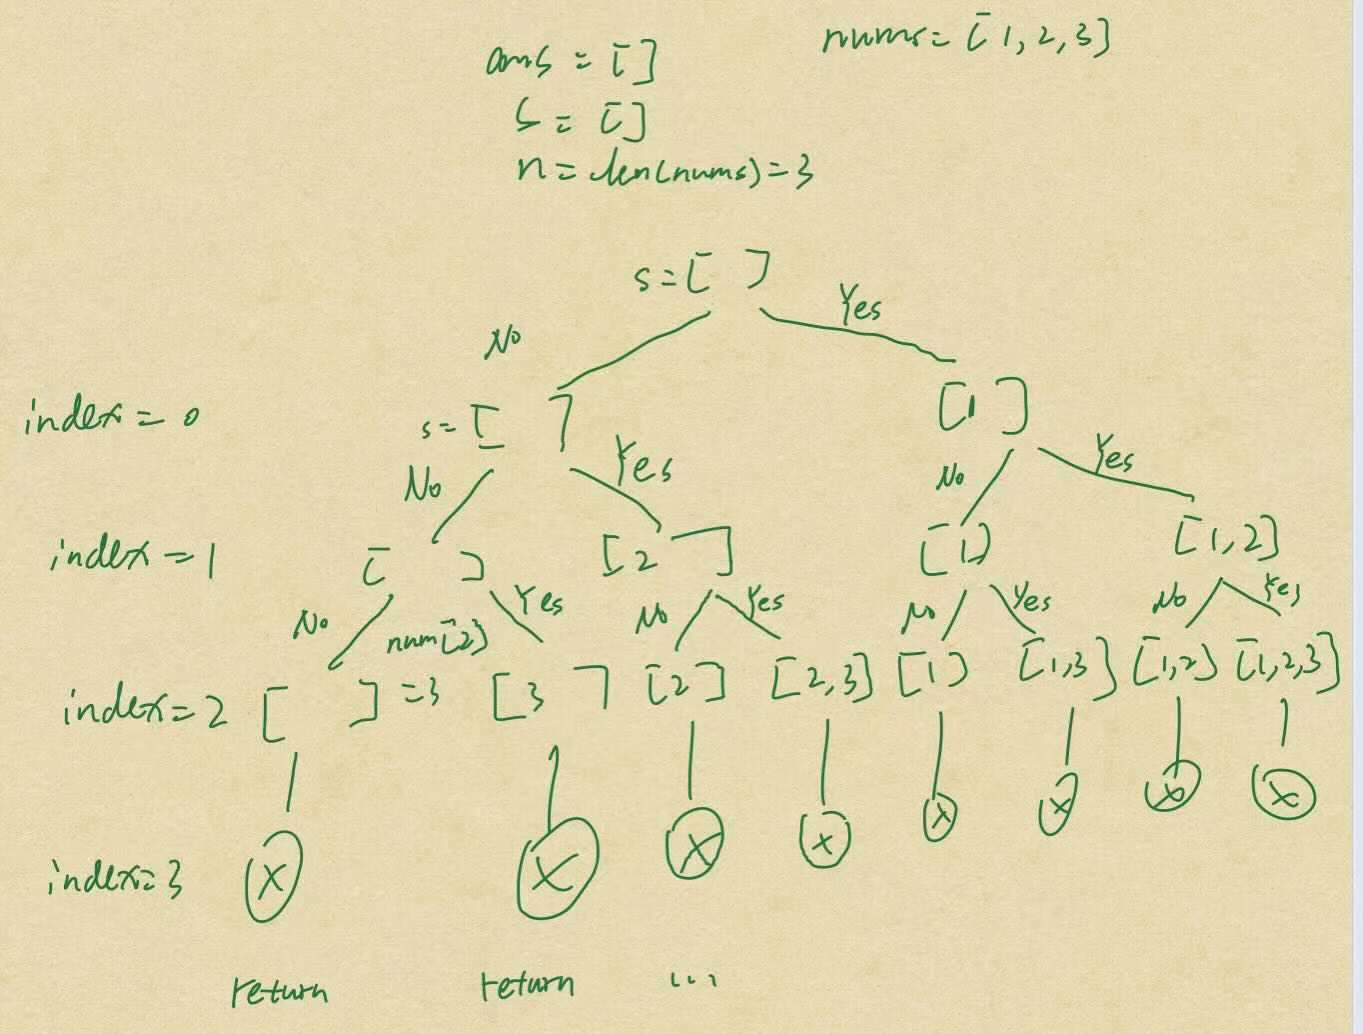 nums = [1, 2, 3]
ans = []
s = []
n = len(nums) = 3
s = [ ]
No Yes
index = 0 s = [ ] [1 ]
No Yes No Yes
index = 1 [ ] [2 ] [1] [1, 2]
No Yes No Yes No Yes No Yes
num[2]
index = 2 [ ] = 3 [3 ] [2] [2, 3] [1] [1, 3] [1, 2] [1, 2, 3]
index = 3 X X X X X X X X
return return ...